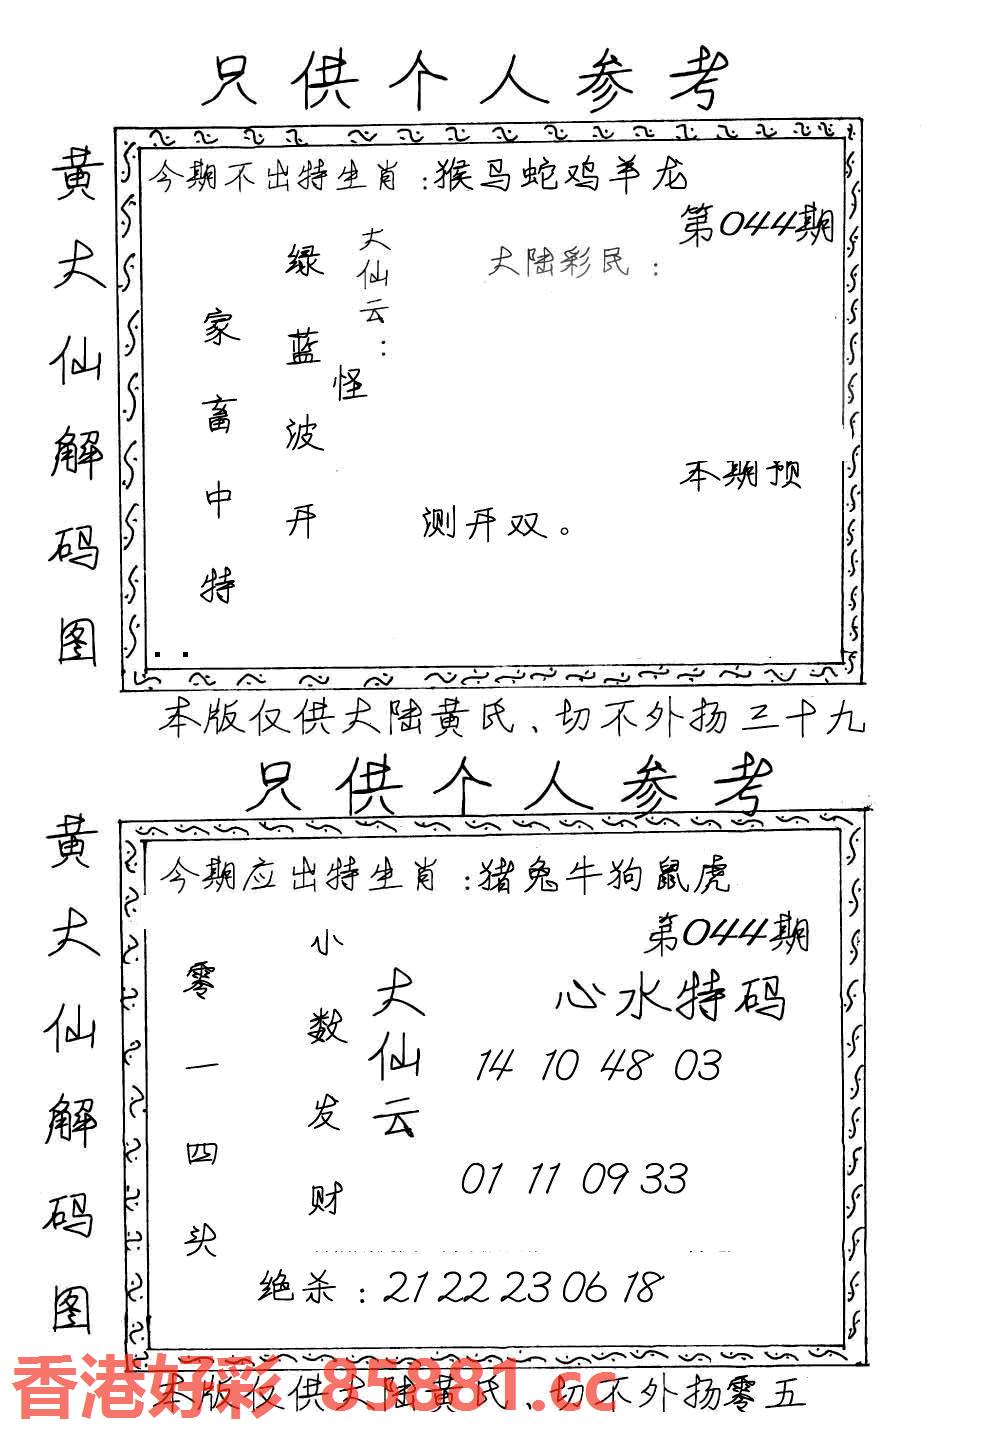 只供个人参考
黄大仙解码图
今期不出特生肖:猴马蛇鸡羊龙
第044期
大陆彩民:
大仙云:
怪
绿蓝波开
家畜中特
本期预
测开双。
本版仅供大陆黄氏、切不外扬三十九
只供个人参考
黄大仙解码图
今期应出特生肖:猪兔牛狗鼠虎
第044期
心水特码
大仙云
小数发财
零一四头
14 10 48 03
01 11 09 33
绝杀:21 22 23 06 18
香港好彩 85881.cc
本版仅供大陆黄氏、切不外扬零五